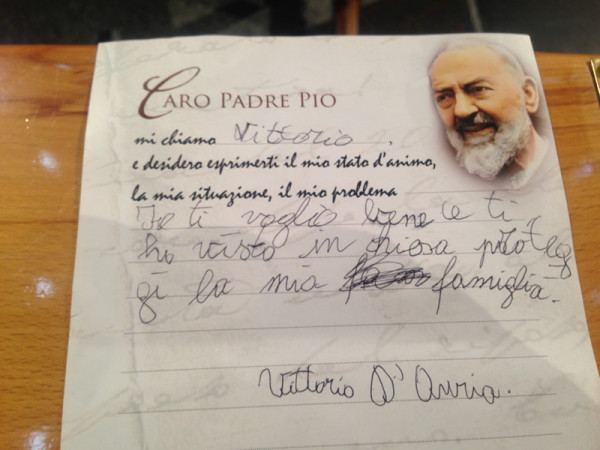 CARO PADRE PIO
mi chiamo Vittorio.
e desidero esprimerti il mio stato d'animo,
la mia situazione, il mio problema
Io ti voglio bene e ti
ho visto in chiesa proteg
gi la mia famiglia.
Vittorio D'Auria.